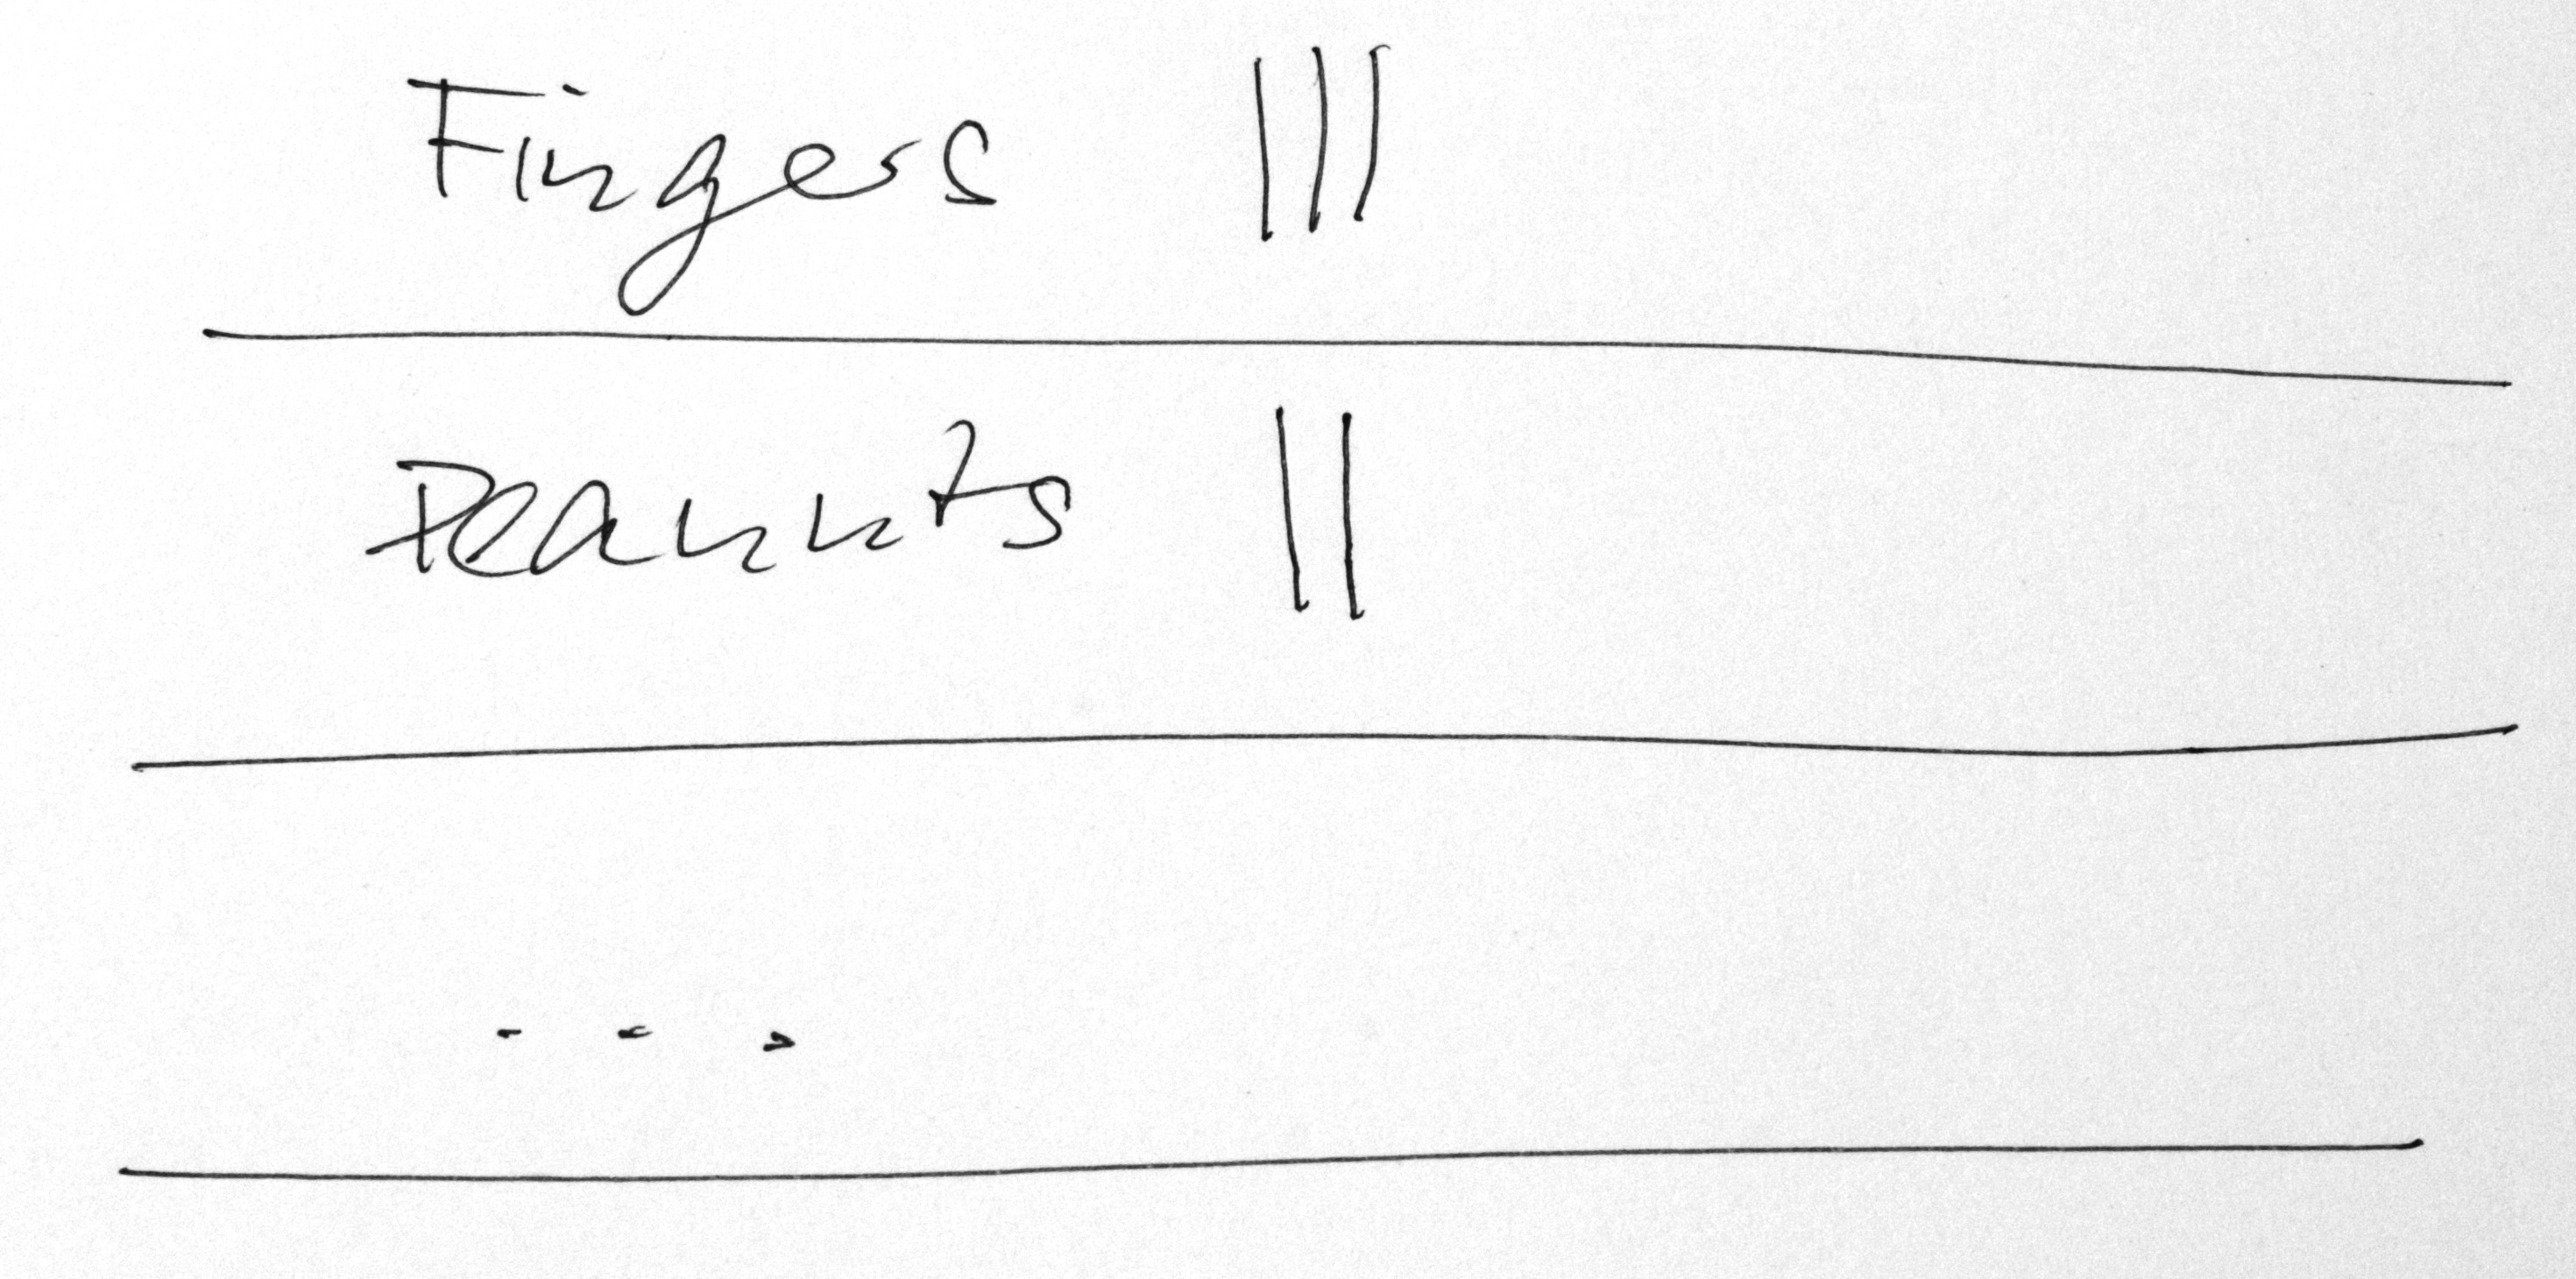 Fingers |||
Peanuts ||
...